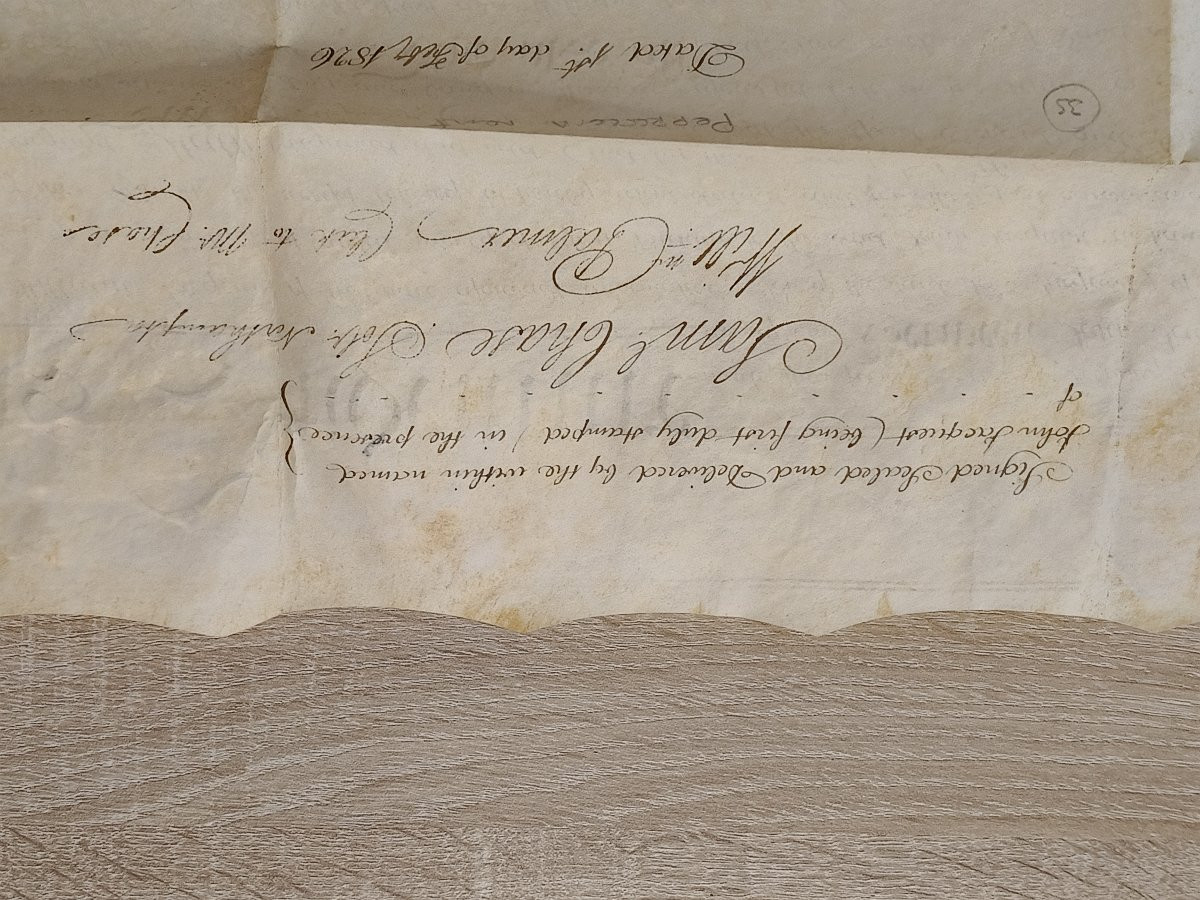 Signed Sealed and Delivered by the within named
John Jacquest (being first duly stamped) in the presence
of
Sam.l Chase. Solr. Northampton
Will.m Palmer Clerk to Mr. Chase
rent
35
Dated 1st. day of Feby 1826